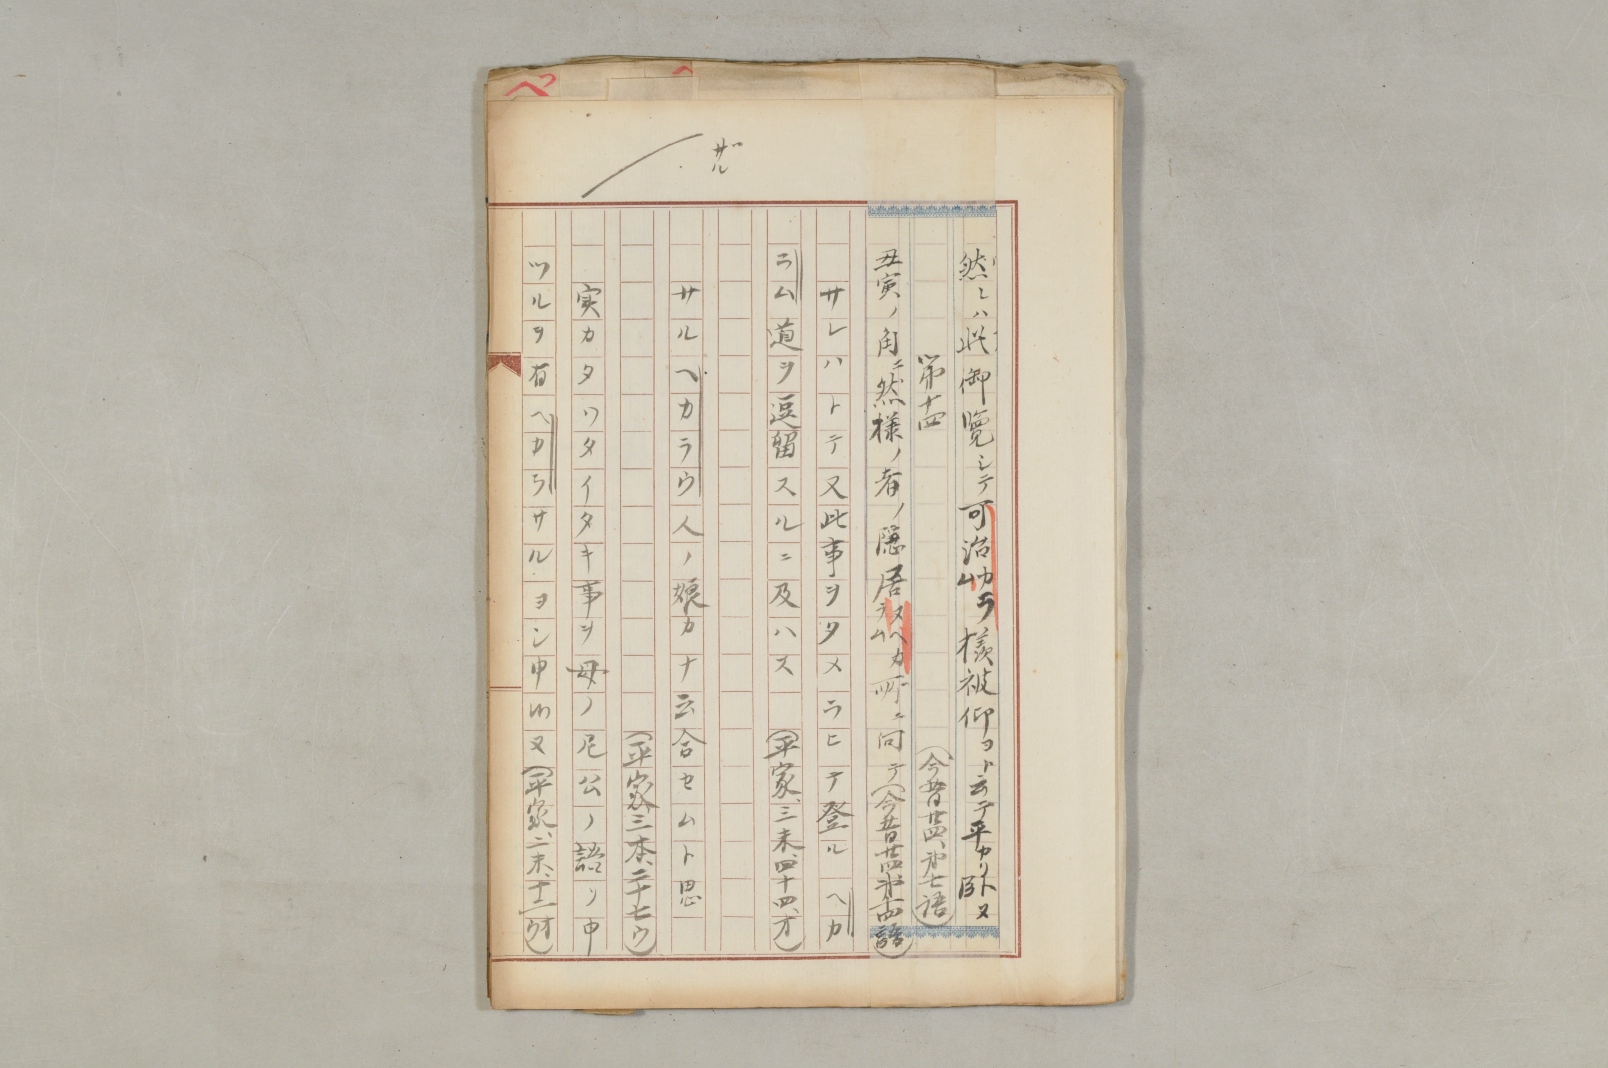 ベ
ザル
然レハ此御覧シテ可治カラム様被仰ヨト云テ平カリ臥ヌ
(今昔廿四、第七語)
第十四
丑寅ノ角ニ然様ノ者ノ隠居ヌベカラム所ニ向テ(今昔廿四第十四語)
サレハトテ又此事ヲタメラヒテ登ルヘカ
ラム道ヲ逗留スルニ及ハス(平家、三末、四十四、オ)
サルヘカラウ人ノ娘カナ云合セムト思
(平家三本、二十七ウ)
実カタワタイタキ事ヲ母ノ尼公ノ語リ申
ツルヲ有ヘカラサルヨシ申ツヌ(平家、二末、十二ウオ)